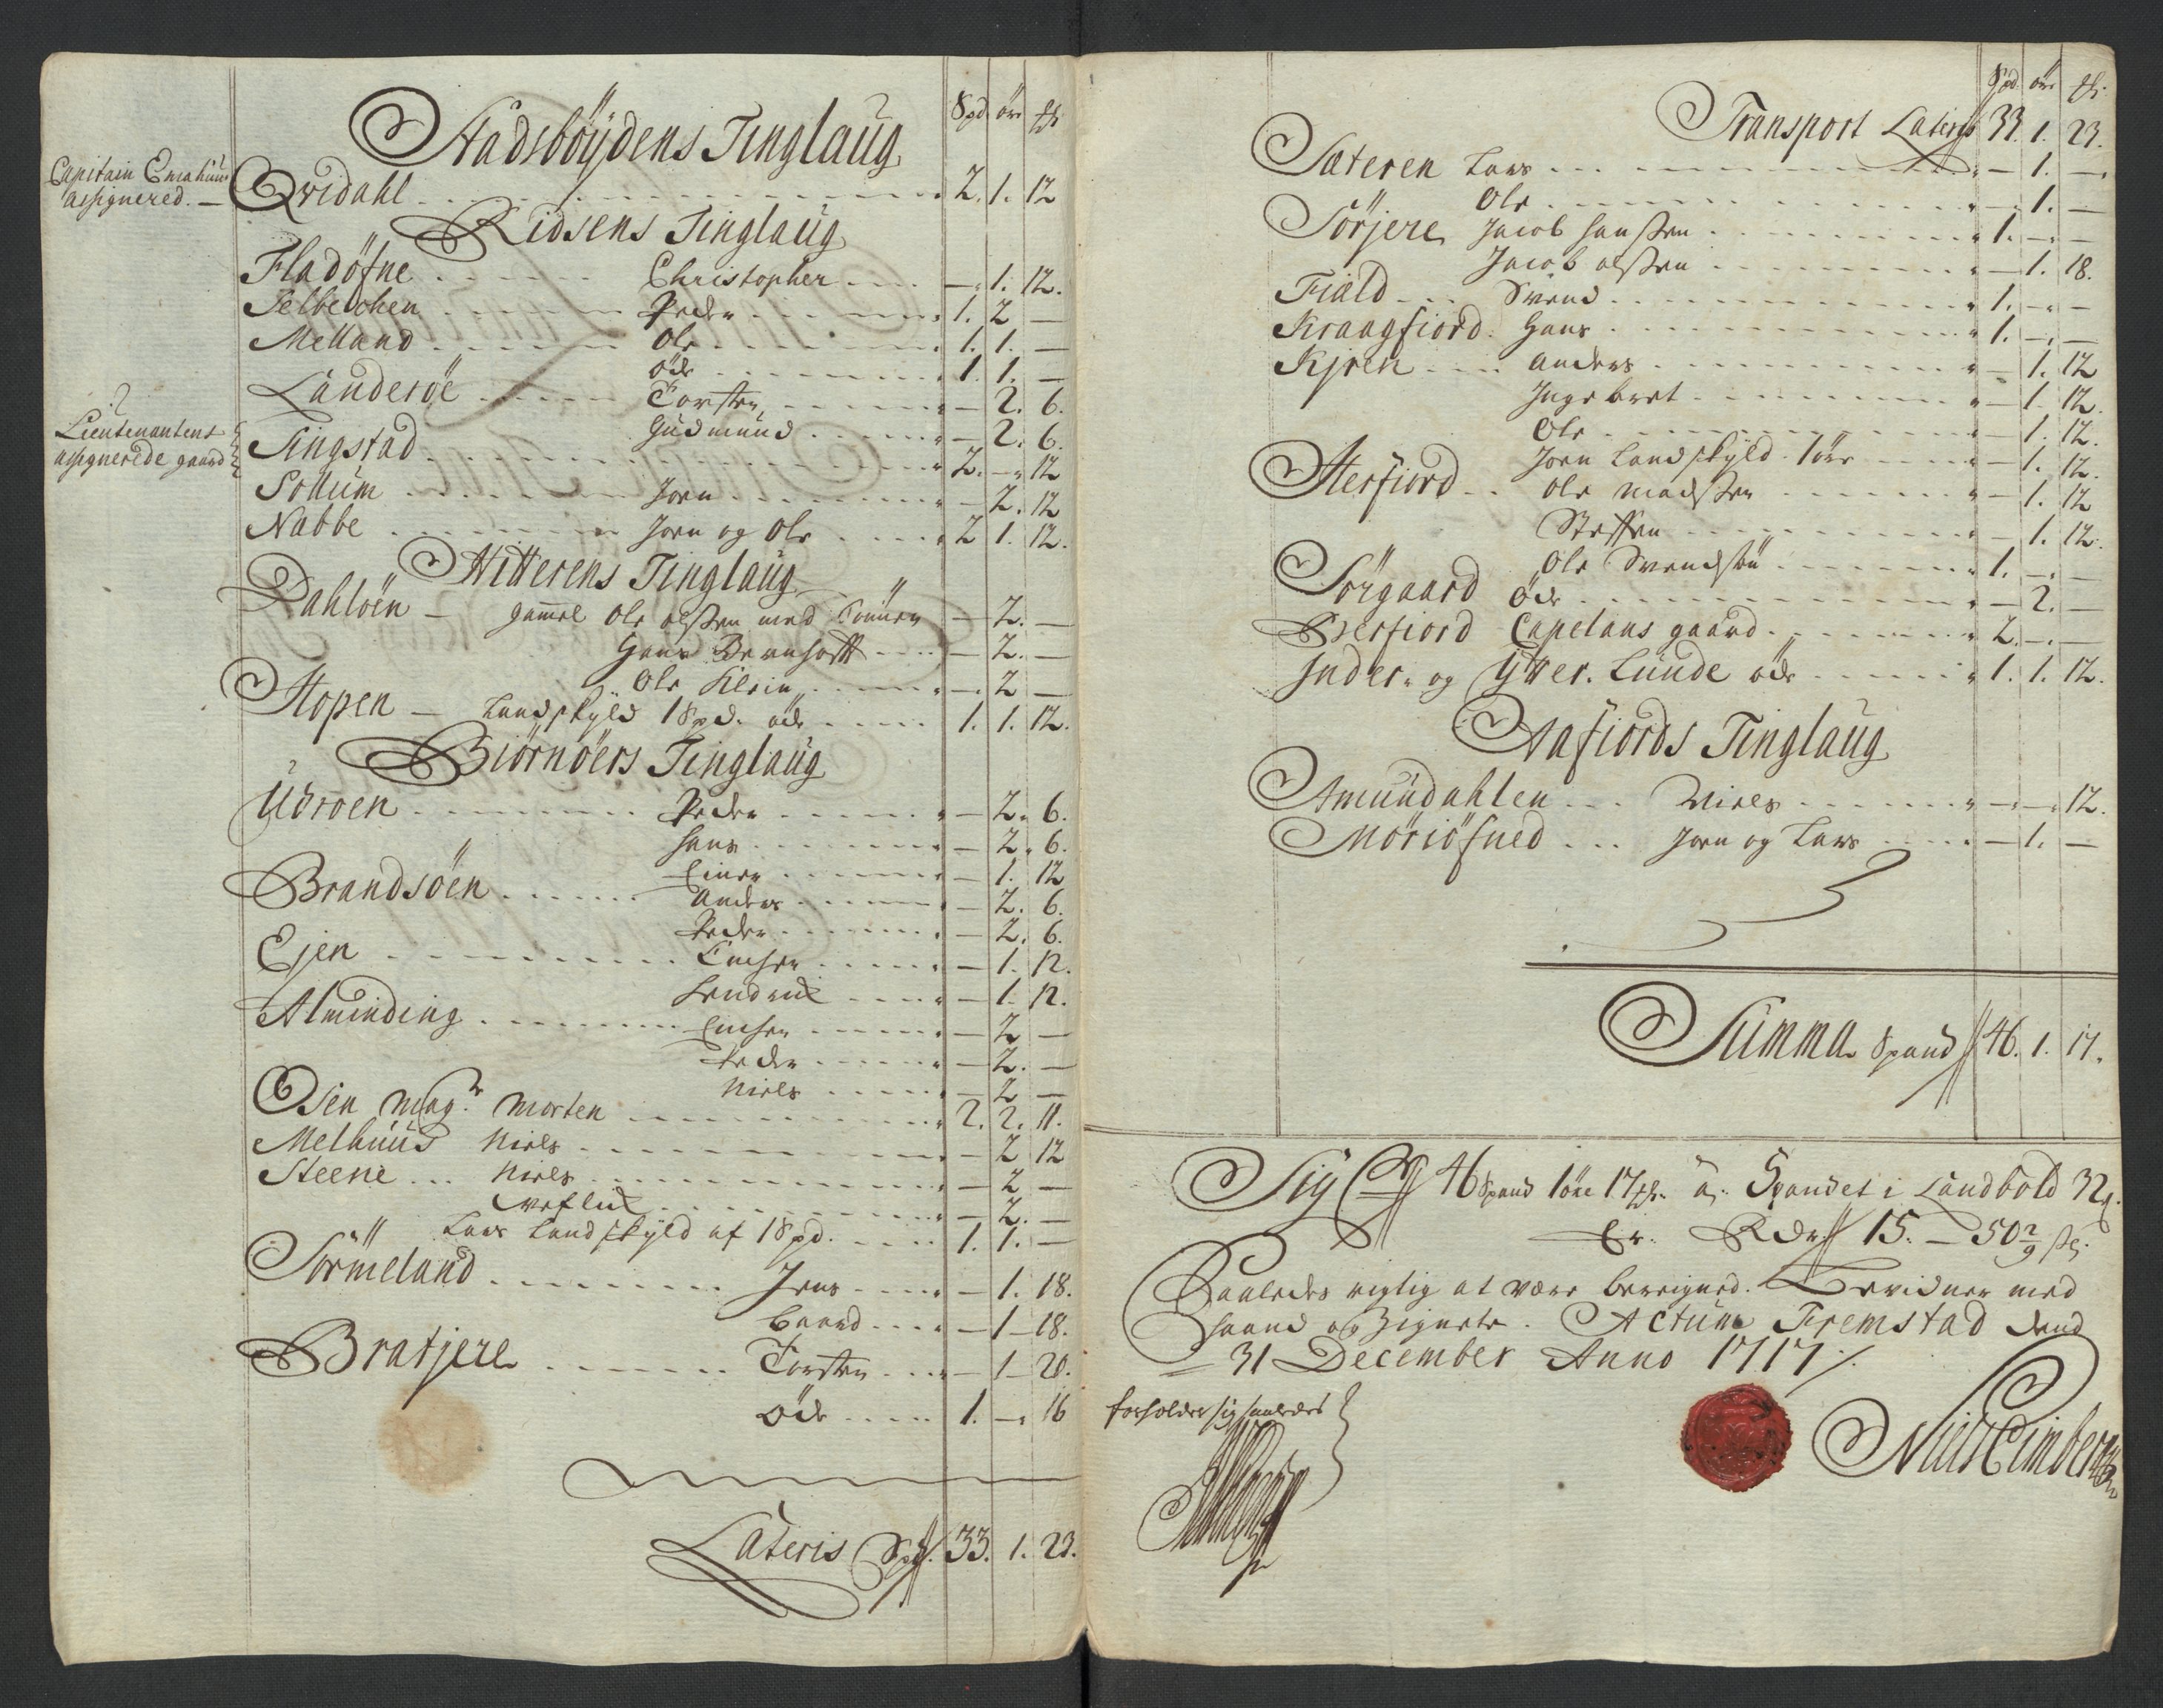 Spd öre ₰
Stadsböÿdens Tinglaug
Capitain Emahuus
assignered. — Qvidahl 2. 1. 12
Ridsens Tinglaug
Fladöfne Christopher — 1. 12.
Selbechen Peder 1. 2 —
Melland Ole 1. 1. —
öde 1. 1. —
Landeröe Torsten — 2. 6.
Gudmund — 2. 6.
Lieutenantens
assignerede gaard Singstad 2. — 12
Sollum Joen — 2. 12
Nabbe Joen og Ole 2 1. 12.
Hitterens Tinglaug
Dahlöen — gamel Ole olsen med — 2. —
Hans Bernhoft — 2. —
Ole Klein — 2 —
Hopen — Landskyld 1 Spd. öde 1. 1. 12.
Biörnöers Tinglaug
Udroen Peder — 2. 6.
Hans — 2. 6.
Einer — 1. 12
Brandsöen Anders — 2. 6.
Peder — 2. 6.
Ejen — 1. 12.
Hendrich — 1. 12.
Alminding — 2 —
Peder — 2. —
Niels — 2 —
Osen Magr. Morten 2. 2. 11.
Melhuus Niels — 2 12
Steene Niels — 2 —
— 2. —
Lars Landskyld af 1 Spd. 1. 1. —
Sörmeland Jens — 1. 18.
Baard — 1 — 18.
Bratjere Torsten — 1 — 20.
Öde 1. — 16
Lateris Spd. 33. 1. 23.
Spd. öre ₰.
Transport Lateris 33. 1. 23.
Sæteren Lars — 1. —
Ole — 1. —
Sörjere Jacob Hansen 1. — —
Jacob olsen — 1. 18.
Fiald Svend 1. — —
Kraagfiord Hans 1. — —
Kjren Anders — 1. 12
Ingebret — 1. 12.
Ole — 1. 12.
Joen Landskyld 1 öre — 1. 12.
Herfiord Ole Madsen — 1. 12
Steffen — 1. 12.
Ole Svendsen 1. — —
Sörgaard Öde — 2. —
Berfiord Capelans gaard 2. — —
Inder- og Ytter- Lunde öde 1. 1. 12.
Aafiords Tinglaug
Amundahlen Niels — — 12.
Möriöfned Joen og Lars — 1. —
Summa Spand 46. 1. 17.
Siger 46 Spand 1 öre 17 ₰. a. Spandet i Landbold 32
Er. Rdr 15. — 50 2/9 s.
Saaledes rigtig at være beregned. Bevidner med
Haand og Zignete. Actum Fremstad dend
31 December Anno 1717
forholder sig saaledes